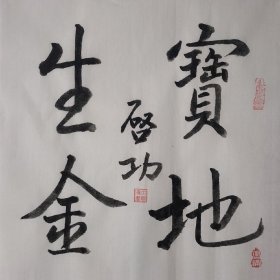 寶地
生金
啓功